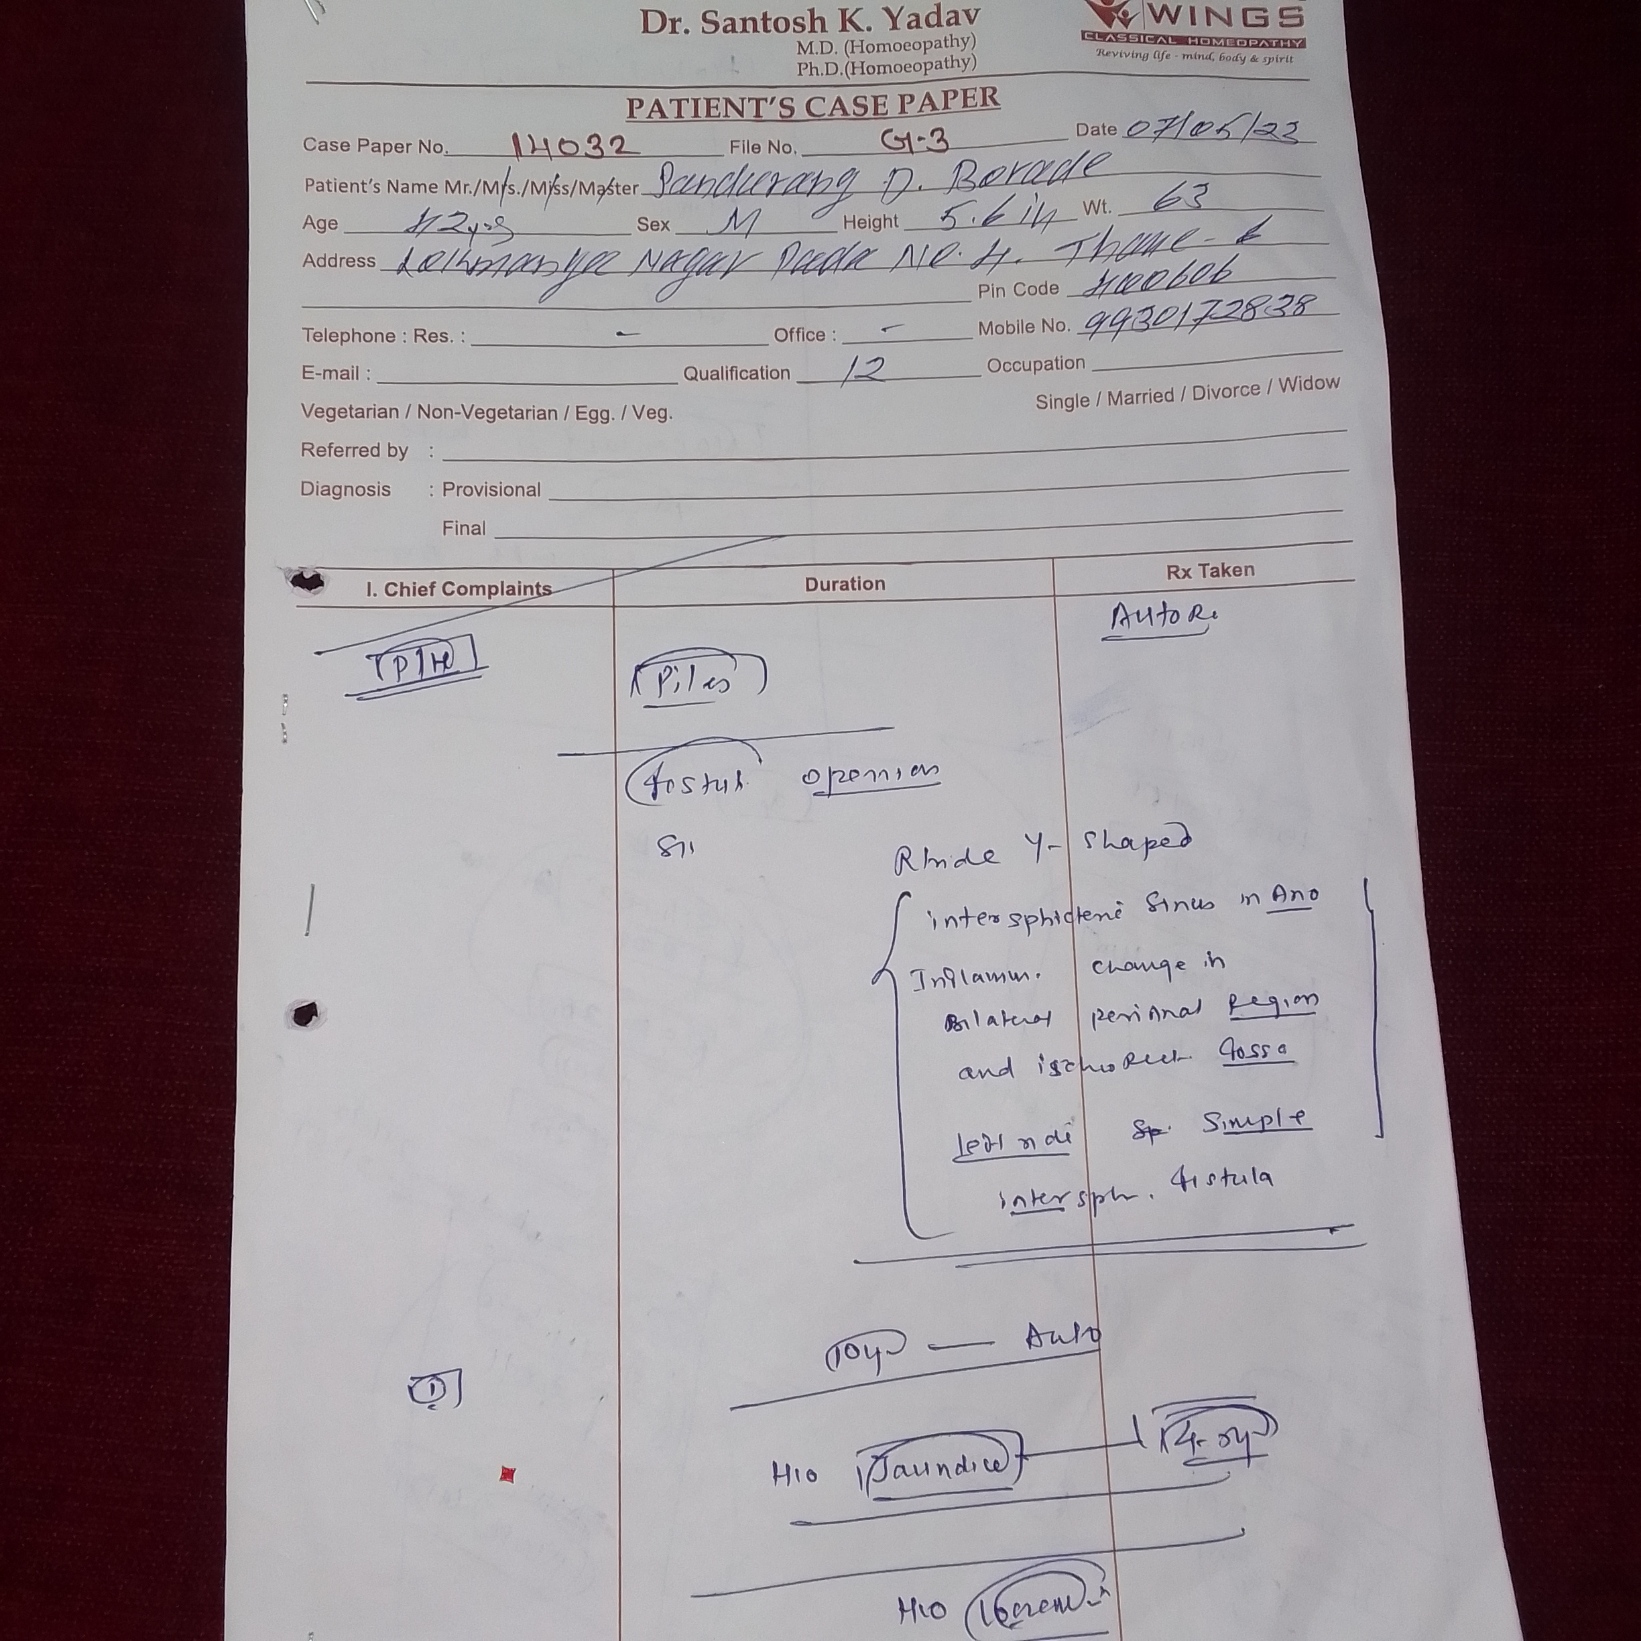 Dr. Santosh K. Yadav
M.D. (Homoeopathy)
Ph.D.(Homoeopathy)
WINGS
CLASSICAL HOMEOPATHY
Reviving life - mind, body & spirit
PATIENT'S CASE PAPER
Case Paper No. 14032 File No. G-3 Date 07/05/22
Patient's Name Mr./Mrs./Miss/Master Pandurang D. Borade
Age 42yrs Sex M Height 5.6 in Wt. 63
Address Lokmanya Nagar Pada No. 4. Thane-
Pin Code 400606
Telephone : Res. : - Office : - Mobile No. 9930172838
E-mail : Qualification 12 Occupation
Vegetarian / Non-Vegetarian / Egg. / Veg. Single / Married / Divorce / Widow
Referred by :
Diagnosis : Provisional
Final
I. Chief Complaints Duration Rx Taken
Piles
Y- shaped
Sinus in Ano
Inflamm. change in
Bilateral perianal Region
and fossa
Simple
intersph. fistula
Auto
1
H/O Jaundice
H/O